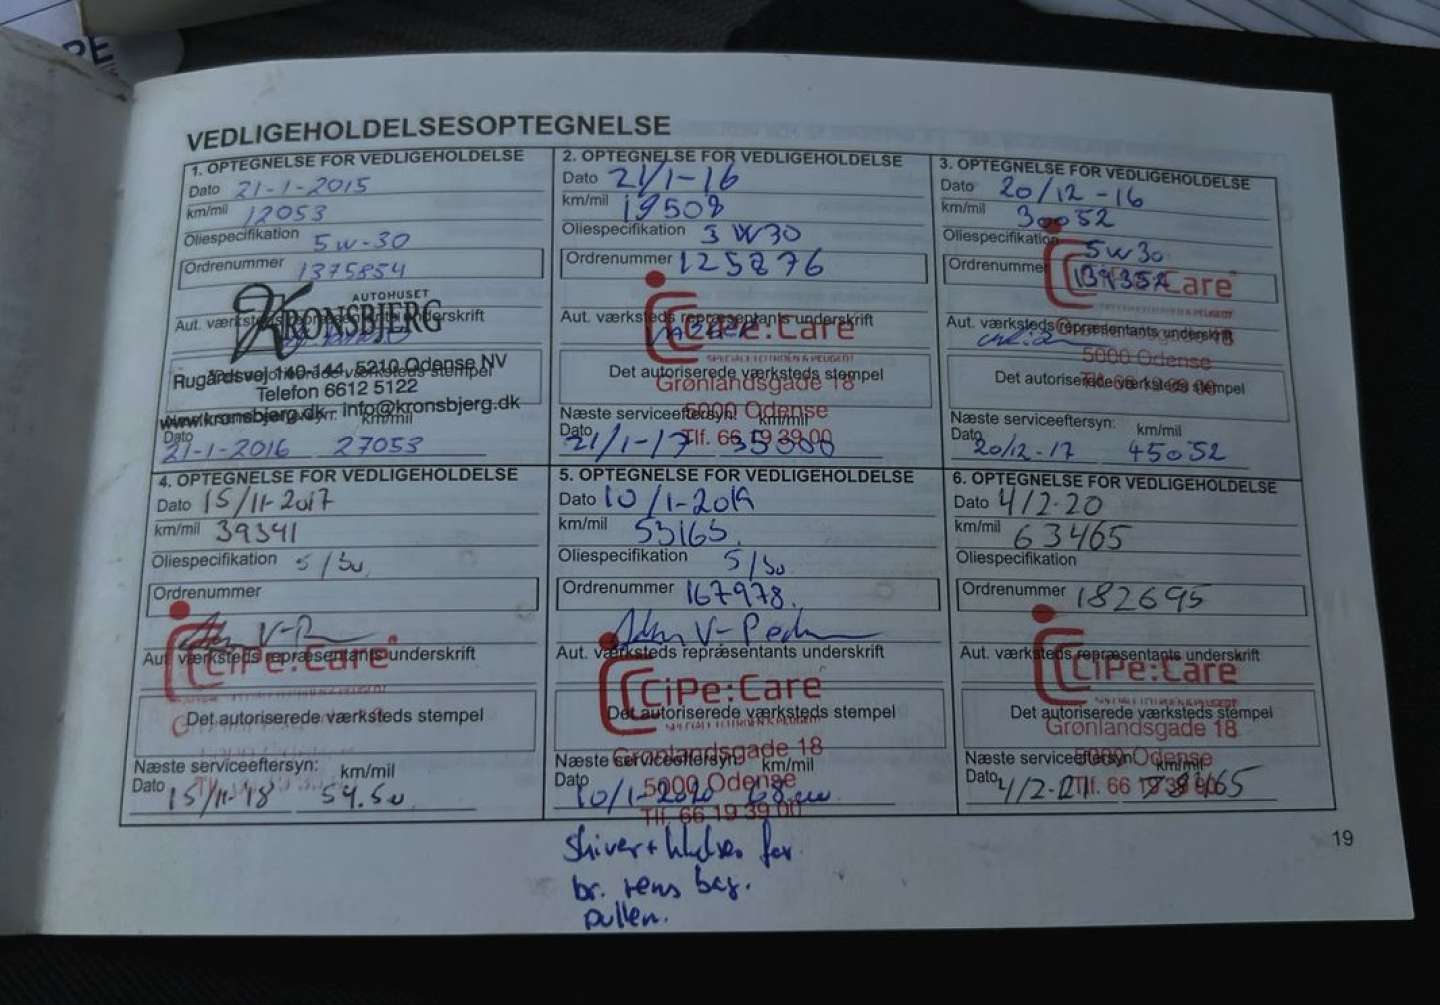 PE
VEDLIGEHOLDELSESOPTEGNELSE
1. OPTEGNELSE FOR VEDLIGEHOLDELSE
Dato 21-1-2015
km/mil 12053
Oliespecifikation 5W-30
Ordrenummer 1375854
AUTOHUSET
KRONSBJERG
Aut. værksteds repræsentants underskrift
Rugårdsvej 140-144, 5210 Odense NV
Det autoriserede værksteds stempel
Telefon 6612 5122
www.kronsbjerg.dk - info@kronsbjerg.dk
Næste serviceeftersyn: km/mil
Dato 21-1-2016 27053
2. OPTEGNELSE FOR VEDLIGEHOLDELSE
Dato 21/1-16
km/mil 19508
Oliespecifikation 5W30
Ordrenummer 125876
CiPe:Care
Aut. værksteds repræsentants underskrift
SPECIALE I CITROËN & PEUGEOT
Det autoriserede værksteds stempel
Grønlandsgade 18
5000 Odense
Næste serviceeftersyn: km/mil
Tlf. 66 19 39 00
Dato 21/1-17 35000
3. OPTEGNELSE FOR VEDLIGEHOLDELSE
Dato 20/12-16
km/mil 30052
Oliespecifikation 5W30
Ordrenummer 139352
CiPe:Care
Aut. værksteds repræsentants underskrift
Grønlandsgade 18
5000 Odense
Det autoriserede værksteds stempel
Tlf. 66 19 39 00
Næste serviceeftersyn: km/mil
Dato 20/12-17 45052
4. OPTEGNELSE FOR VEDLIGEHOLDELSE
Dato 15/11-2017
km/mil 39341
Oliespecifikation 5/30
Ordrenummer
Aut. værksteds repræsentants underskrift
CiPe:Care
Det autoriserede værksteds stempel
Næste serviceeftersyn: km/mil
Dato 15/11-18 54.50
5. OPTEGNELSE FOR VEDLIGEHOLDELSE
Dato 10/1-2019
km/mil 53165.
Oliespecifikation 5/30
Ordrenummer 167978.
Aut. værksteds repræsentants underskrift
CiPe:Care
Det autoriserede værksteds stempel
SPECIALE I CITROËN & PEUGEOT
Grønlandsgade 18
Næste serviceeftersyn: km/mil
5000 Odense
Dato 10/1-2020 68.000
Tlf. 66 19 39 00
6. OPTEGNELSE FOR VEDLIGEHOLDELSE
Dato 4/2-20
km/mil 63465
Oliespecifikation
Ordrenummer 182695
Aut. værksteds repræsentants underskrift
CiPe:Care
SPECIALE I CITROËN & PEUGEOT
Det autoriserede værksteds stempel
Grønlandsgade 18
5000 Odense
Næste serviceeftersyn: km/mil
Tlf. 66 19 39 00
Dato 4/2-21 78465
skiver + klodser for
br. rens bag.
pullen.
19